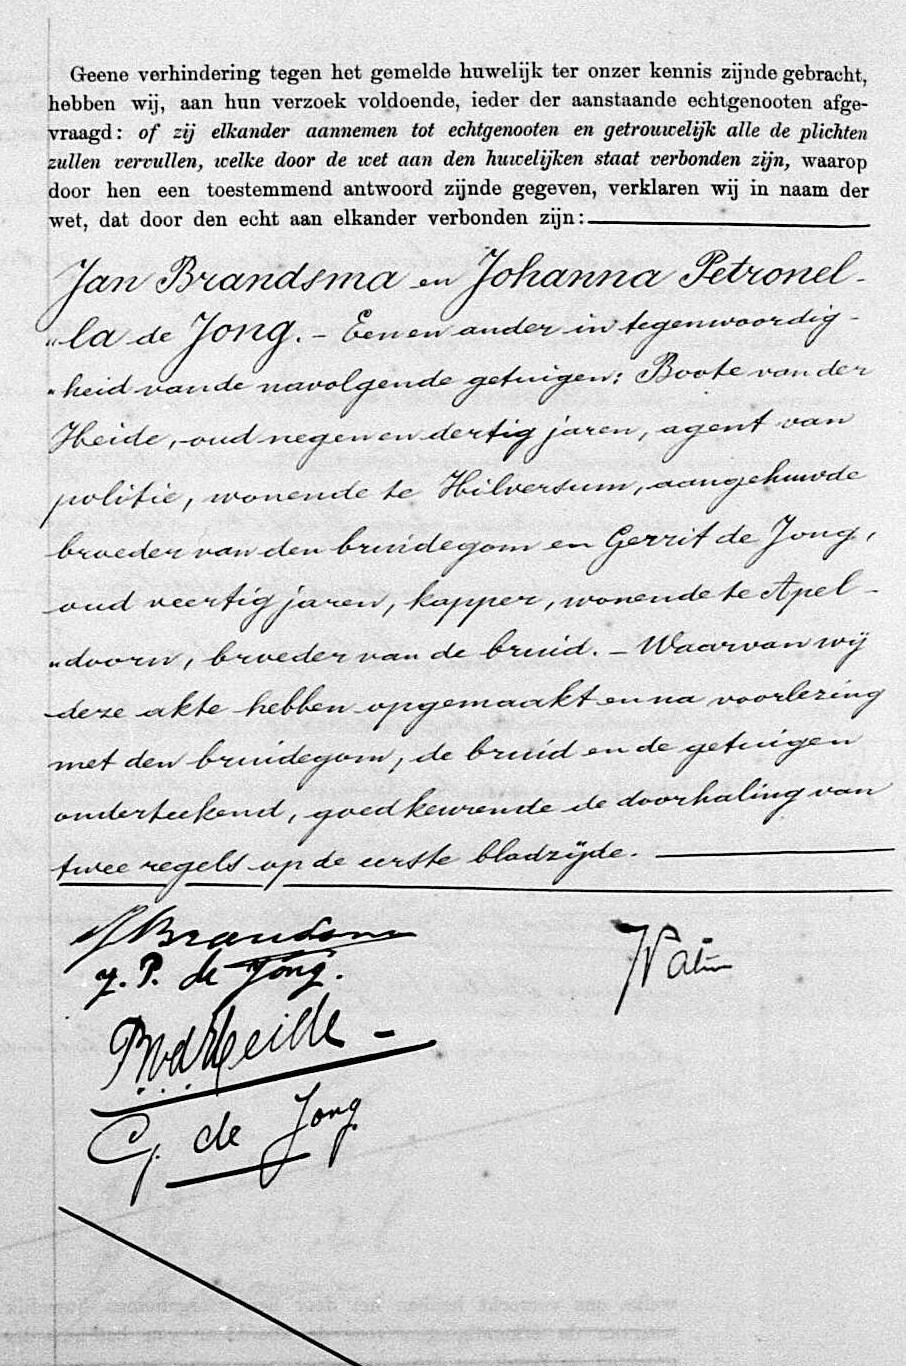 Geene verhindering tegen het gemelde huwelijk ter onzer kennis zijnde gebracht,
hebben wij, aan hun verzoek voldoende, ieder der aanstaande echtgenooten afge-
vraagd: of zij elkander aannemen tot echtgenooten en getrouwelijk alle de plichten
zullen vervullen, welke door de wet aan den huwelijken staat verbonden zijn, waarop
door hen een toestemmend antwoord zijnde gegeven, verklaren wij in naam der
wet, dat door den echt aan elkander verbonden zijn:
Jan Brandsma en Johanna Petronel-
„la de Jong. - Een en ander in tegenwoordig-
„heid van de navolgende getuigen: Boote van der
Heide, oud negen en dertig jaren, agent van
politie, wonende te Hilversum, aangehuwde
broeder van den bruidegom en Gerrit de Jong,
oud veertig jaren, kapper, wonende te Apel-
„doorn, broeder van de bruid. - Waarvan wij
deze akte hebben opgemaakt en na voorlezing
met den bruidegom, de bruid en de getuigen
onderteekend, goedkeurende de doorhaling van
twee regels op de eerste bladzijde.
J Brandsma
J. P. de Jong.
B v d Heide
G. de Jong